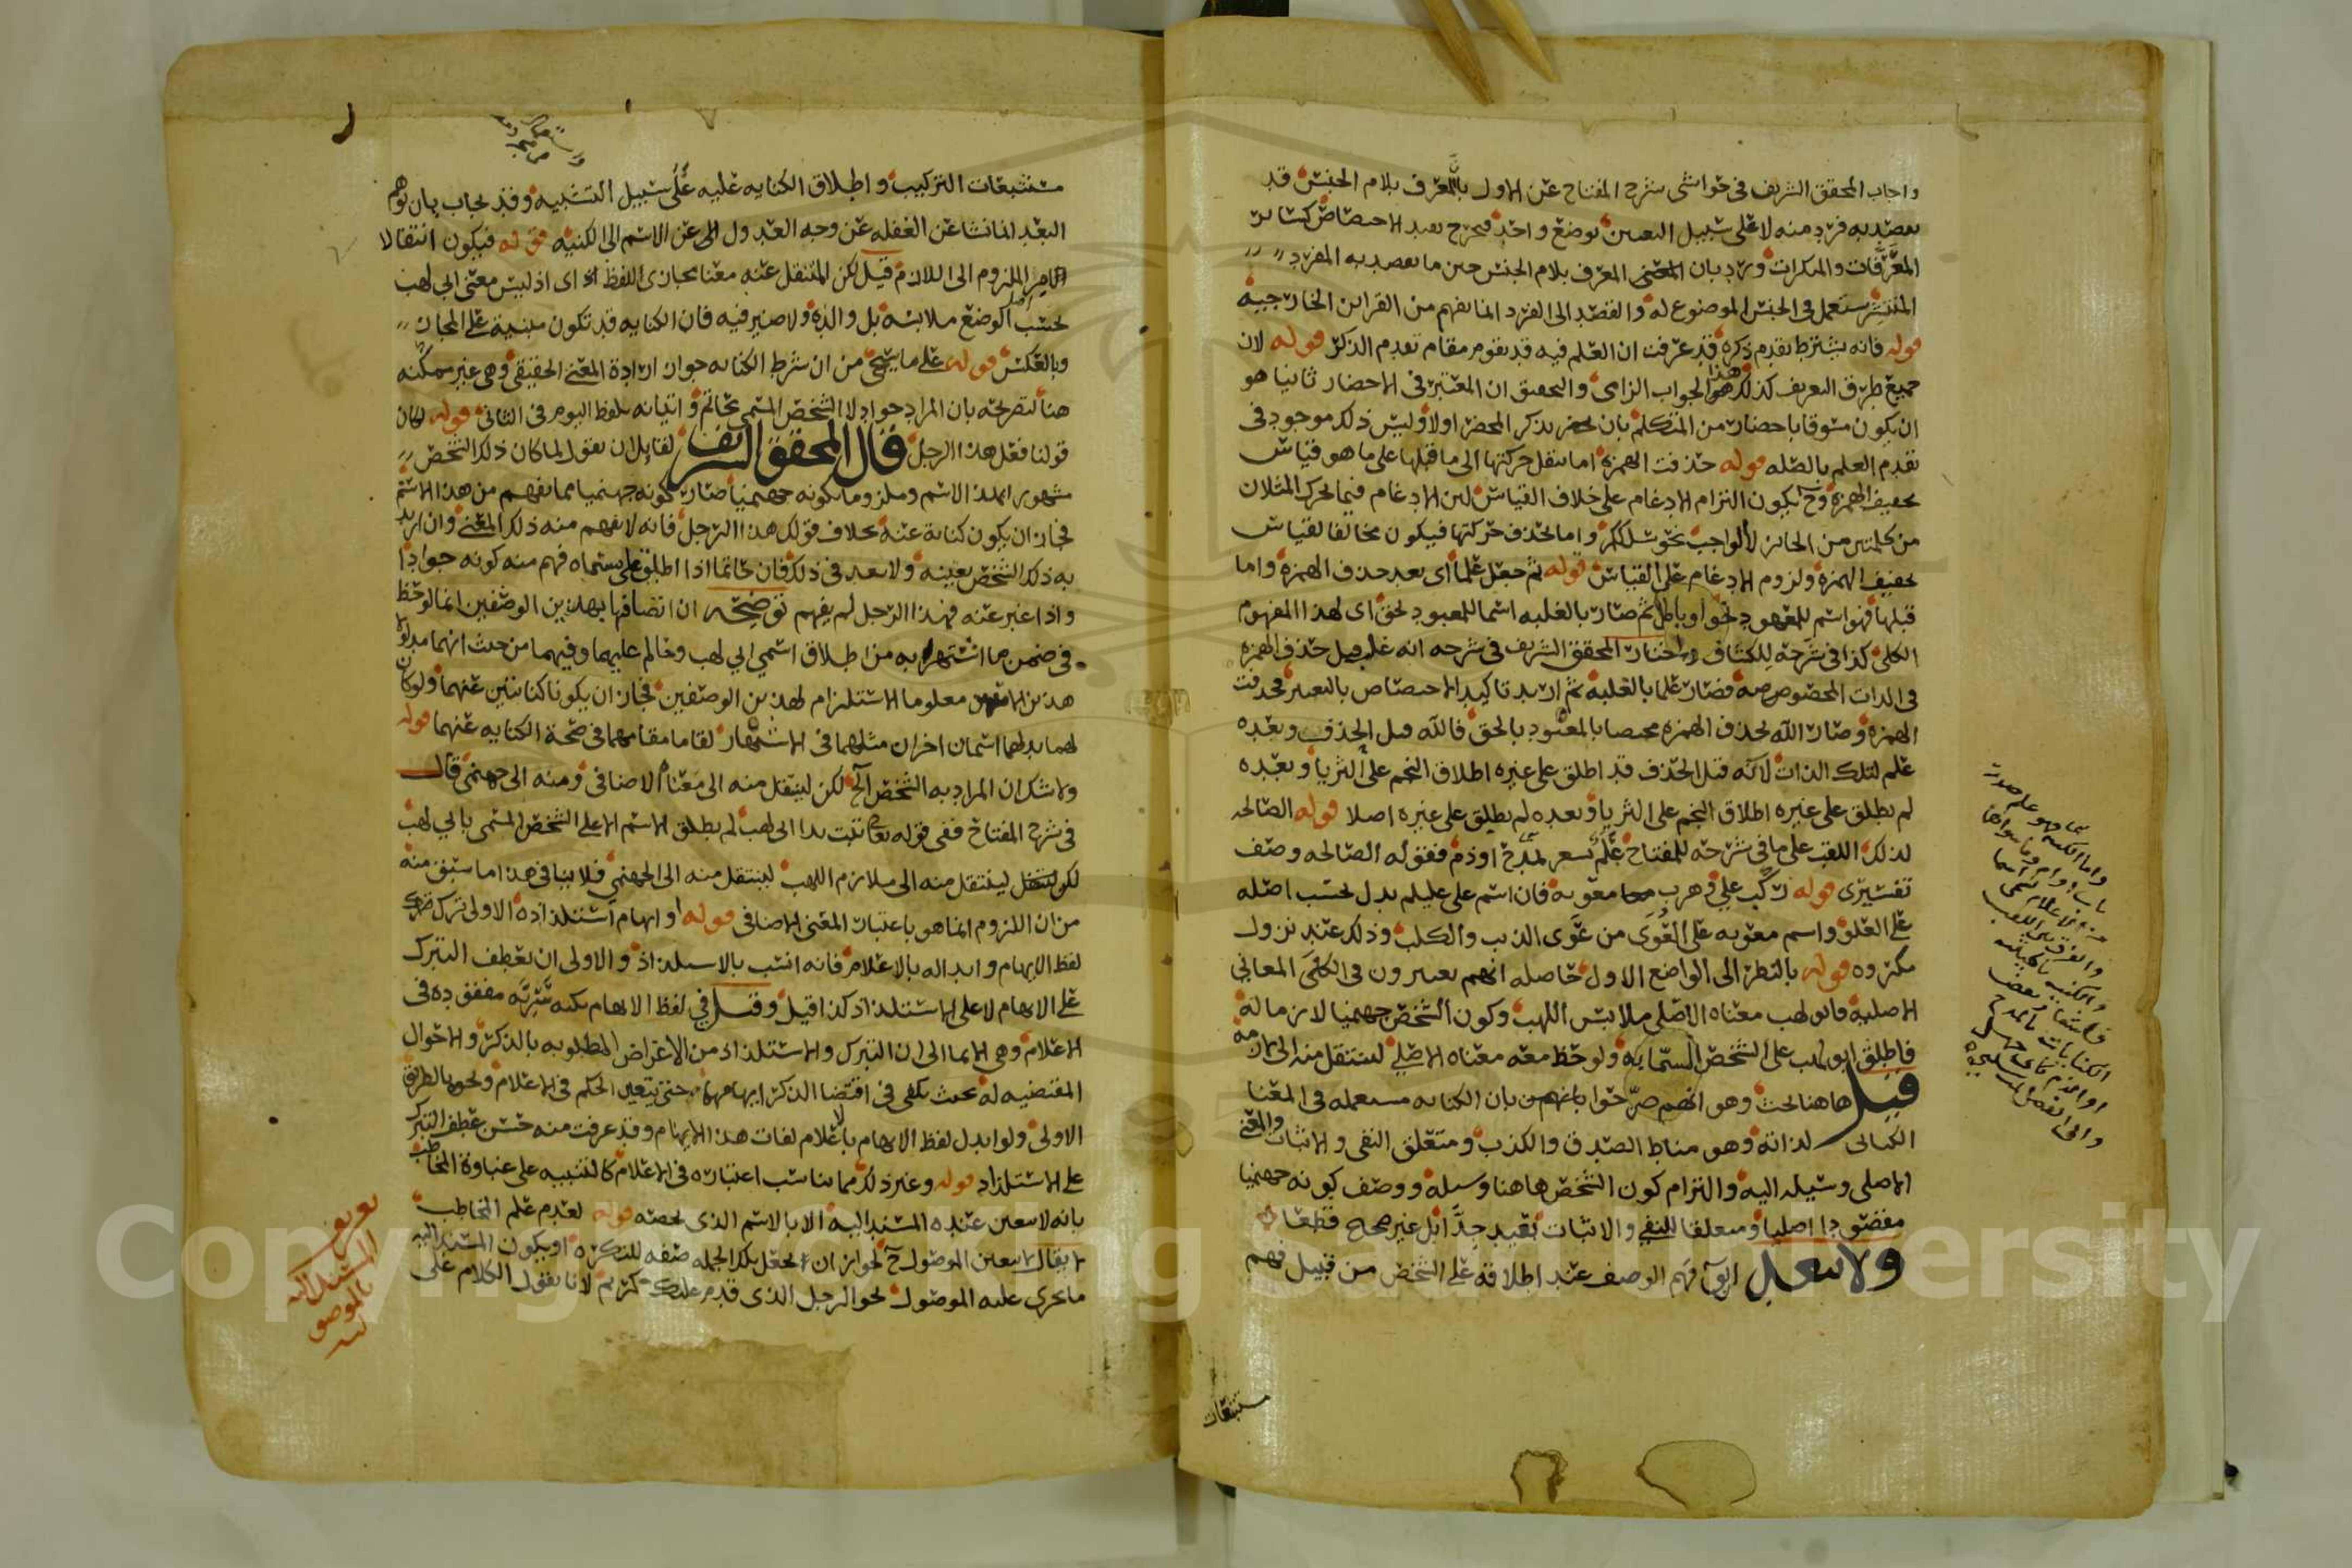 واجاب المحقق الشريف في حواشي شرح المفتاح عن الاول بان المعرف بلام الجنس قد
يقصد به فرد منه لا على سبيل التعيين بوضع واحد فيخرج بقيد الاختصاص كسائر
المعرفات والنكرات ورد بان المعرف بلام الجنس حين ما يقصد به الفرد
المنتشر مستعمل في الجنس الموضوع له والقصد الى الفرد انما يفهم من القراين الخارجية
قوله فانه يشترط تقدم ذكره قد عرفت ان العلم فيه قد يقوم مقام تقدم الذكر قوله لان
جميع طرق التعريف كذلك هذا هو الجواب الزامي والتحقيق ان المعتبر في الاحضار ثانيا هو
ان يكون مسوقا باحضار من المتكلم بان يحضر بذكر المحضر اولا وليس ذلك موجود في
تقدم العلم بالصله قوله حذفت الهمزة اما بنقل حركتها الى ما قبلها على ما هو قياس
تخفيف الهمزة وح يكون التزام الادغام على خلاف القياس لان الادغام فيما تحرك المثلان
من كلمتين من الجائز لا الواجب نحو سللكم واما بحذف حركتها فيكون مخالفا لقياس
تخفيف الهمزة ولزوم الادغام على القياس قوله ثم جعل علما اى بعد حذف الهمزة واما
قبلها فهو اسم للمعبود بحق او باطل ثم صار بالغلبه اسما للمعبود بحق اى لهذا المفهوم
الكلي كذا في شرحه للكشاف واختار المحقق الشريف في شرحه انه غلب قبل حذف الهمزه
في الذات المخصوصه فصار علما بالغلبة ثم اريد تاكيد الاختصاص بالتغيير فحذفت
الهمزه وصار الله بحذف الهمزه مختصا بالمعبود بالحق فالاله قبل الحذف وبعده
علم لتلك الذات لانه قبل الحذف قد اطلق على غيره اطلاق النجم على الثريا وبعده
لم يطلق على غيره اطلاق النجم على الثريا وبعده لم يطلق على غيره اصلا قوله الصالحه
لذلك اللقب على ما في شرحه للمفتاح علم يشعر بمدح او ذم فقوله الصالحه وصف
تفسيرى قوله ركب علي وهرب معاويه فان اسم على عليلم يدل بحسب اصله
على العلو واسم معويه على العوى من عوى الذيب والكلب وذلك عند نزول
مكروه قوله بالنظر الى الواضع الاول حاصله انهم يعتبرون في الكنى المعاني
الاصلية فابو لهب معناه الاصلي ملابس اللهب وكون الشخص جهنميا لازم له
فاطلق ابو لهب على الشخص المسمى به ولوحظ معه معناه الاصلي لينتقل منه الى لازمه
قيل هاهنا بحث وهو انهم صرحوا بان الكنايه مستعمله في المعنى
الكنائى لذاته وهو مناط الصدق والكذب ومتعلق النفى والاثبات والمعنى
الاصلي وسيله اليه والتزام كون الشخص هاهنا وسيلة ووصف كونه جهنميا
مقصودا اصليا ومتعلقا للنفى والاثبات بعيد جدا بل غير صحيح قطعا
ولا يبعد ان فهم الوصف عند اطلاقه على الشخص من قبيل فهم
مستتبعات
مستتبعات التركيب واطلاق الكنايه عليه على سبيل التشبيه وقد يجاب بان توهم
البعد انما نشا عن الغفله عن وجه العدول عن الاسم الى الكنيه قوله فيكون انتقالا
من الملزوم الى اللازم قيل لكن المنتقل عنه معنا مجازى للفظ اى اذ ليس معنى ابي لهب
بحسب الوضع ملابسه بل والده ولا ضير فيه فان الكنايه قد تكون مبنية على المجاز
وبالعكس قوله على ما سيجئ من ان شرط الكنايه جواز ارادة المعنى الحقيقي وهي غير ممكنه
هنا لتصريحه بان المراد جواد لا الشخص المسمى بحاتم واتيانه بلفظ اليوم في الثاني قوله لكان
قولنا فعل هذا الرجل قال المحقق الشريف لقايل ان يقول لما كان ذلك الشخص
مشهورا بهذا الاسم وملزوما لكونه جهنميا صار كونه جهنميا مما يفهم من هذا الاسم
فجاز ان يكون كناية عنه بخلاف قولك هذا الرجل فانه لا يفهم منه ذلك المعنى وان اريد
به ذلك الشخص بعينه ولا بعد في ذلك فان حاتما اذا اطلق على مسماه فهم منه كونه جوادا
واذا عبر عنه بهذا الرجل لم يفهم توضيحه ان اتصافهما بهذين الوصفين انما لوحظ
في ضمن ما اشتهر به من اطلاق اسمي ابي لهب وحاتم عليهما وفيهما من حيث انهما مدلولا
هذين الاسمين معلوما الاستلزام لهذين الوصفين فجاز ان يكونا كنايتين عنهما ولو كان
لهما بدلهما اسمان اخران مثلهما في الاشتهار لقاما مقامهما في صحة الكنايه عنهما قوله
ولا شك ان المراد به الشخص الخ لكن لينتقل منه الى معناه الاضافى ومنه الى جهنمي قال
في شرح المفتاح ففي قوله تعالى تبت يدا ابي لهب لم يطلق الاسم الا على الشخص المسمى بابي لهب
لكن لينتقل منه الى ملازم اللهب لينتقل منه الى الجهنمي فلا ينافي هذا ما سبق منه
من ان اللزوم انما هو باعتبار المعنى الاضافى قوله او ايهام استلذاذه الاولى ترك
لفظ الايهام وابداله بالاعلام فانه انسب بالاستلذاذ والاولى ان يعطف التبرك
على الايهام لا على الاستلذاذ كذا قيل وقيل في لفظ الايهام نكته سريه مفقوده في
الاعلام وهي الايما الى ان التبرك والاستلذاذ من الاغراض المطلوبه بالذكر والاحوال
المقتضيه له بحيث يكفى في اقتضا الذكر ايهامها حتى يتعين الحكم في الاعلام ونحوه بالطريق
الاولى ولو ابدل لفظ الايهام بالاعلام لفات هذا الايهام وقد عرفت منه حسن عطف التبرك
على الاستلذاذ قوله وغير ذلك مما يناسب اعتباره في الاعلام كالتنبيه على غباوة المخاطب
بانه لا يتعين عنده المسند اليه الا بالاسم الذى يخصه قوله لعدم علم المخاطب
لا يقال لا يتعين الموصول ح لجواز ان تجعل تلك الجمله صفه للنكره او يكون المسند اليه
ما يجرى عليه الموصول نحو الرجل الذى قدم عليك كريم لانا نقول الكلام على
تعريف
المسند اليه
بالموصو
ليه